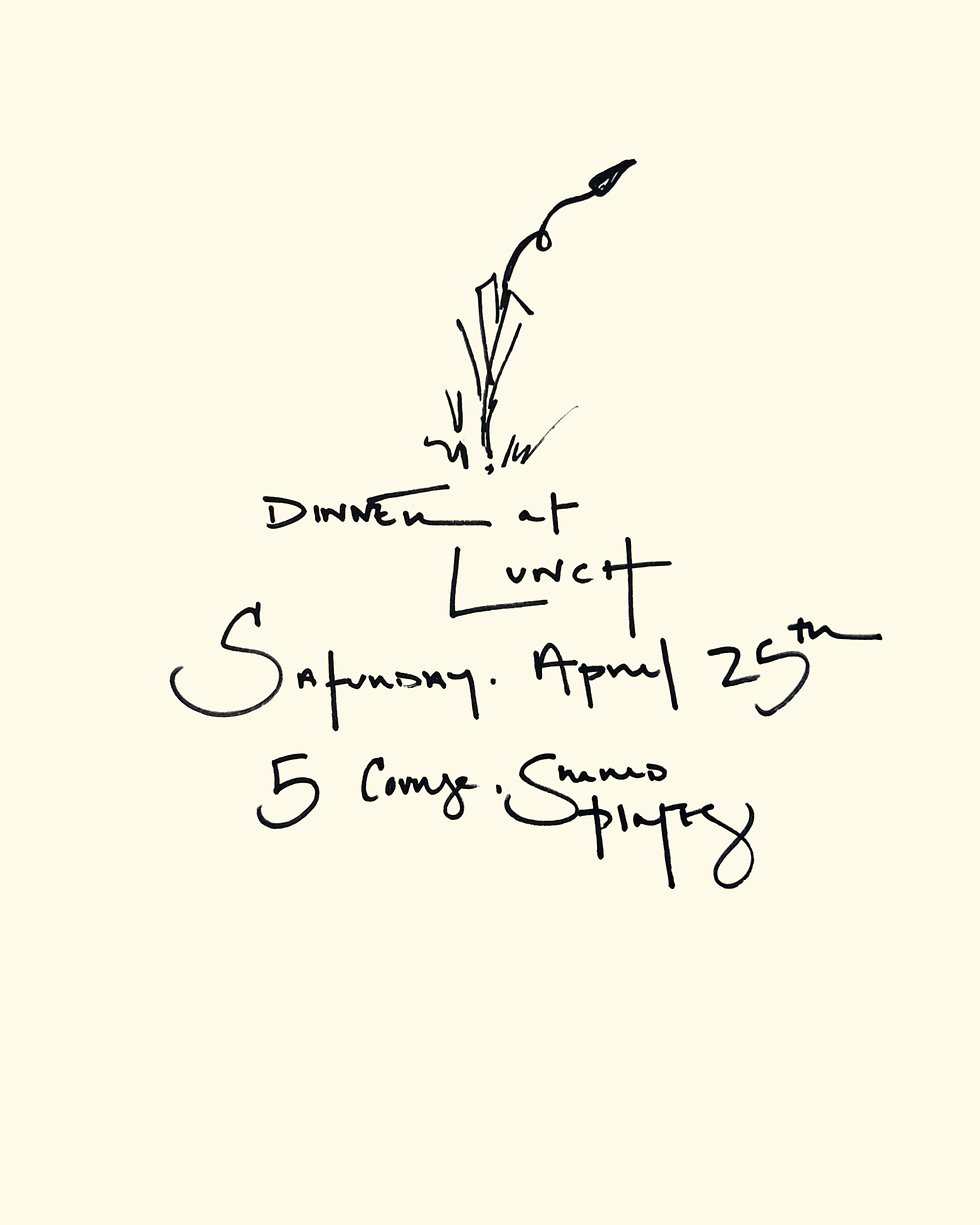 DINNER at
LUNCH
SATURDAY. April 25th
5 Course. Shared
plates